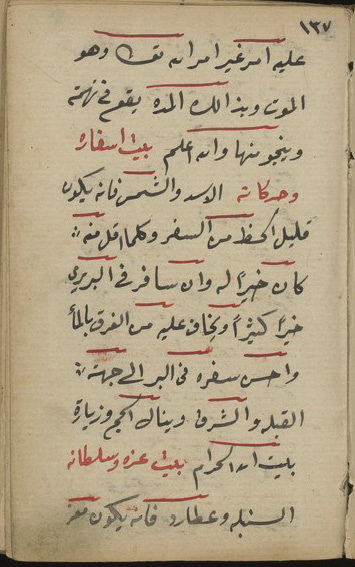 ١٣٧
عليه امر غير امر الله تعالى وهو
الموت وبذالك المده يقع في تهمة
وينجو منها والله اعلم بيت اسفاره
وحركاته الاسد والشمس فانه يكون
قليل الحظ من السفر وكلما اقل منه
كان خيرا له وان سافر في البر يرى
خيراً كثيراً ويخاف عليه من الغرق بالمأ
واحسن سفره في البر الى جهة
القبله والشرق وينال الحج وزيارة
بيت الله الحرام بيت عزه وسلطانه
السنبله وعطارد فانه يكون معز